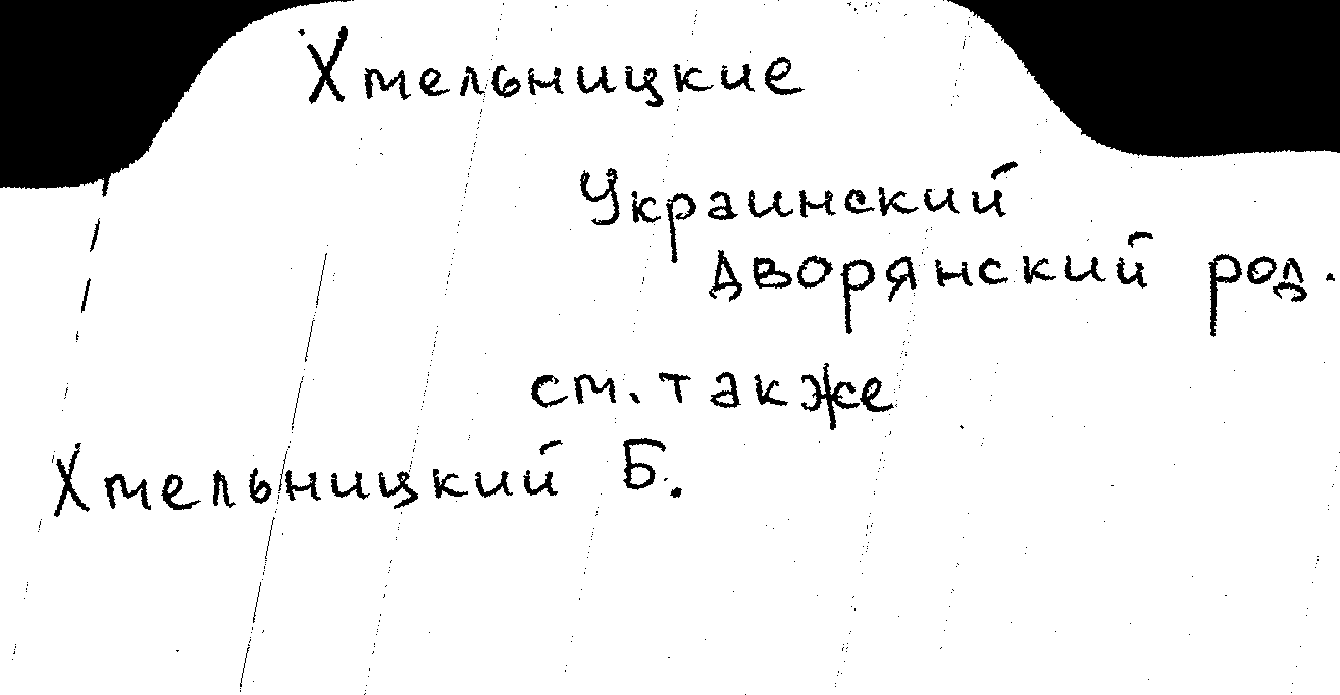 Хмельницкие
Украинский
дворянский род.
см. также
Хмельницкий Б.